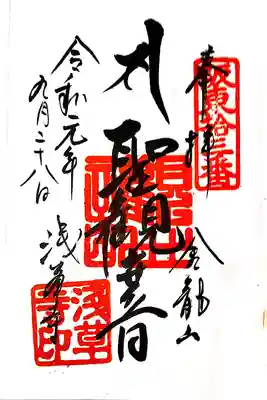 坂東拾三番
奉拝
金龍山
聖観世音
令和元年
九月二十八日
浅草寺
浅草寺印